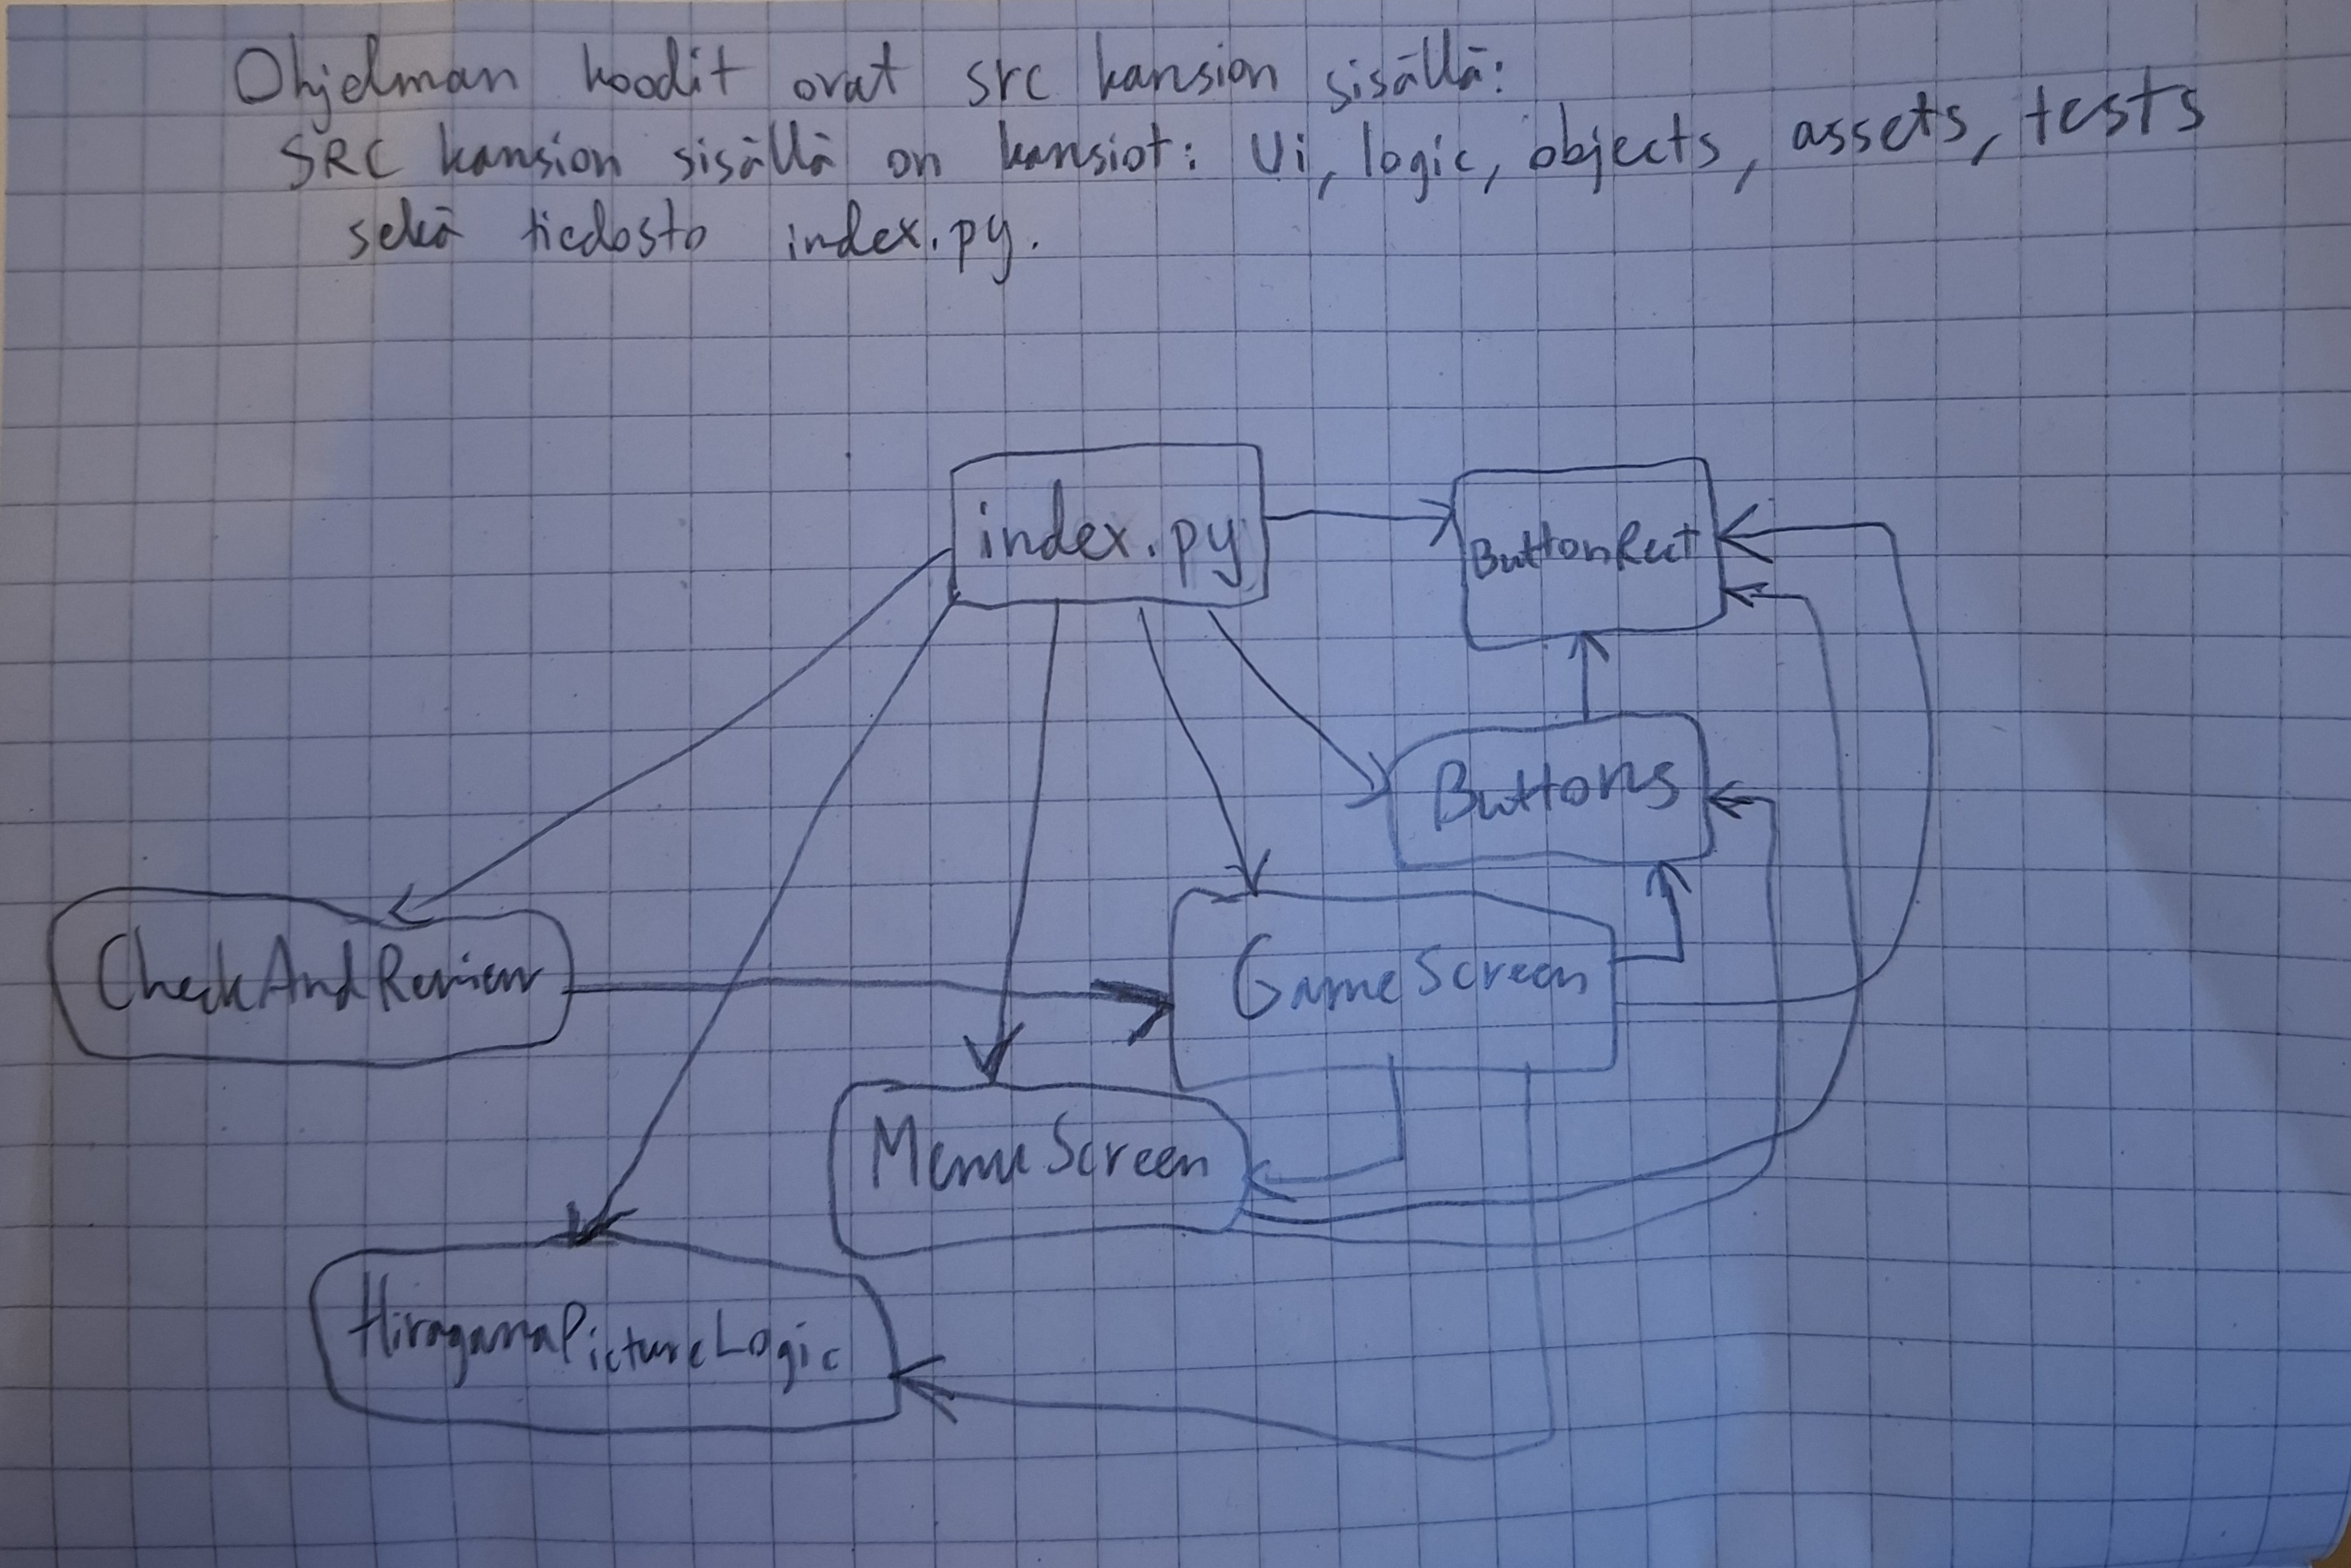 Ohjelman koodit ovat src kansion sisällä:
SRC kansion sisällä on kansiot: Ui, logic, objects, assets, tests
sekä tiedosto index.py.
index.py
ButtonRect
Buttons
CheckAndReview
GameScreen
MenuScreen
HiraganaPictureLogic